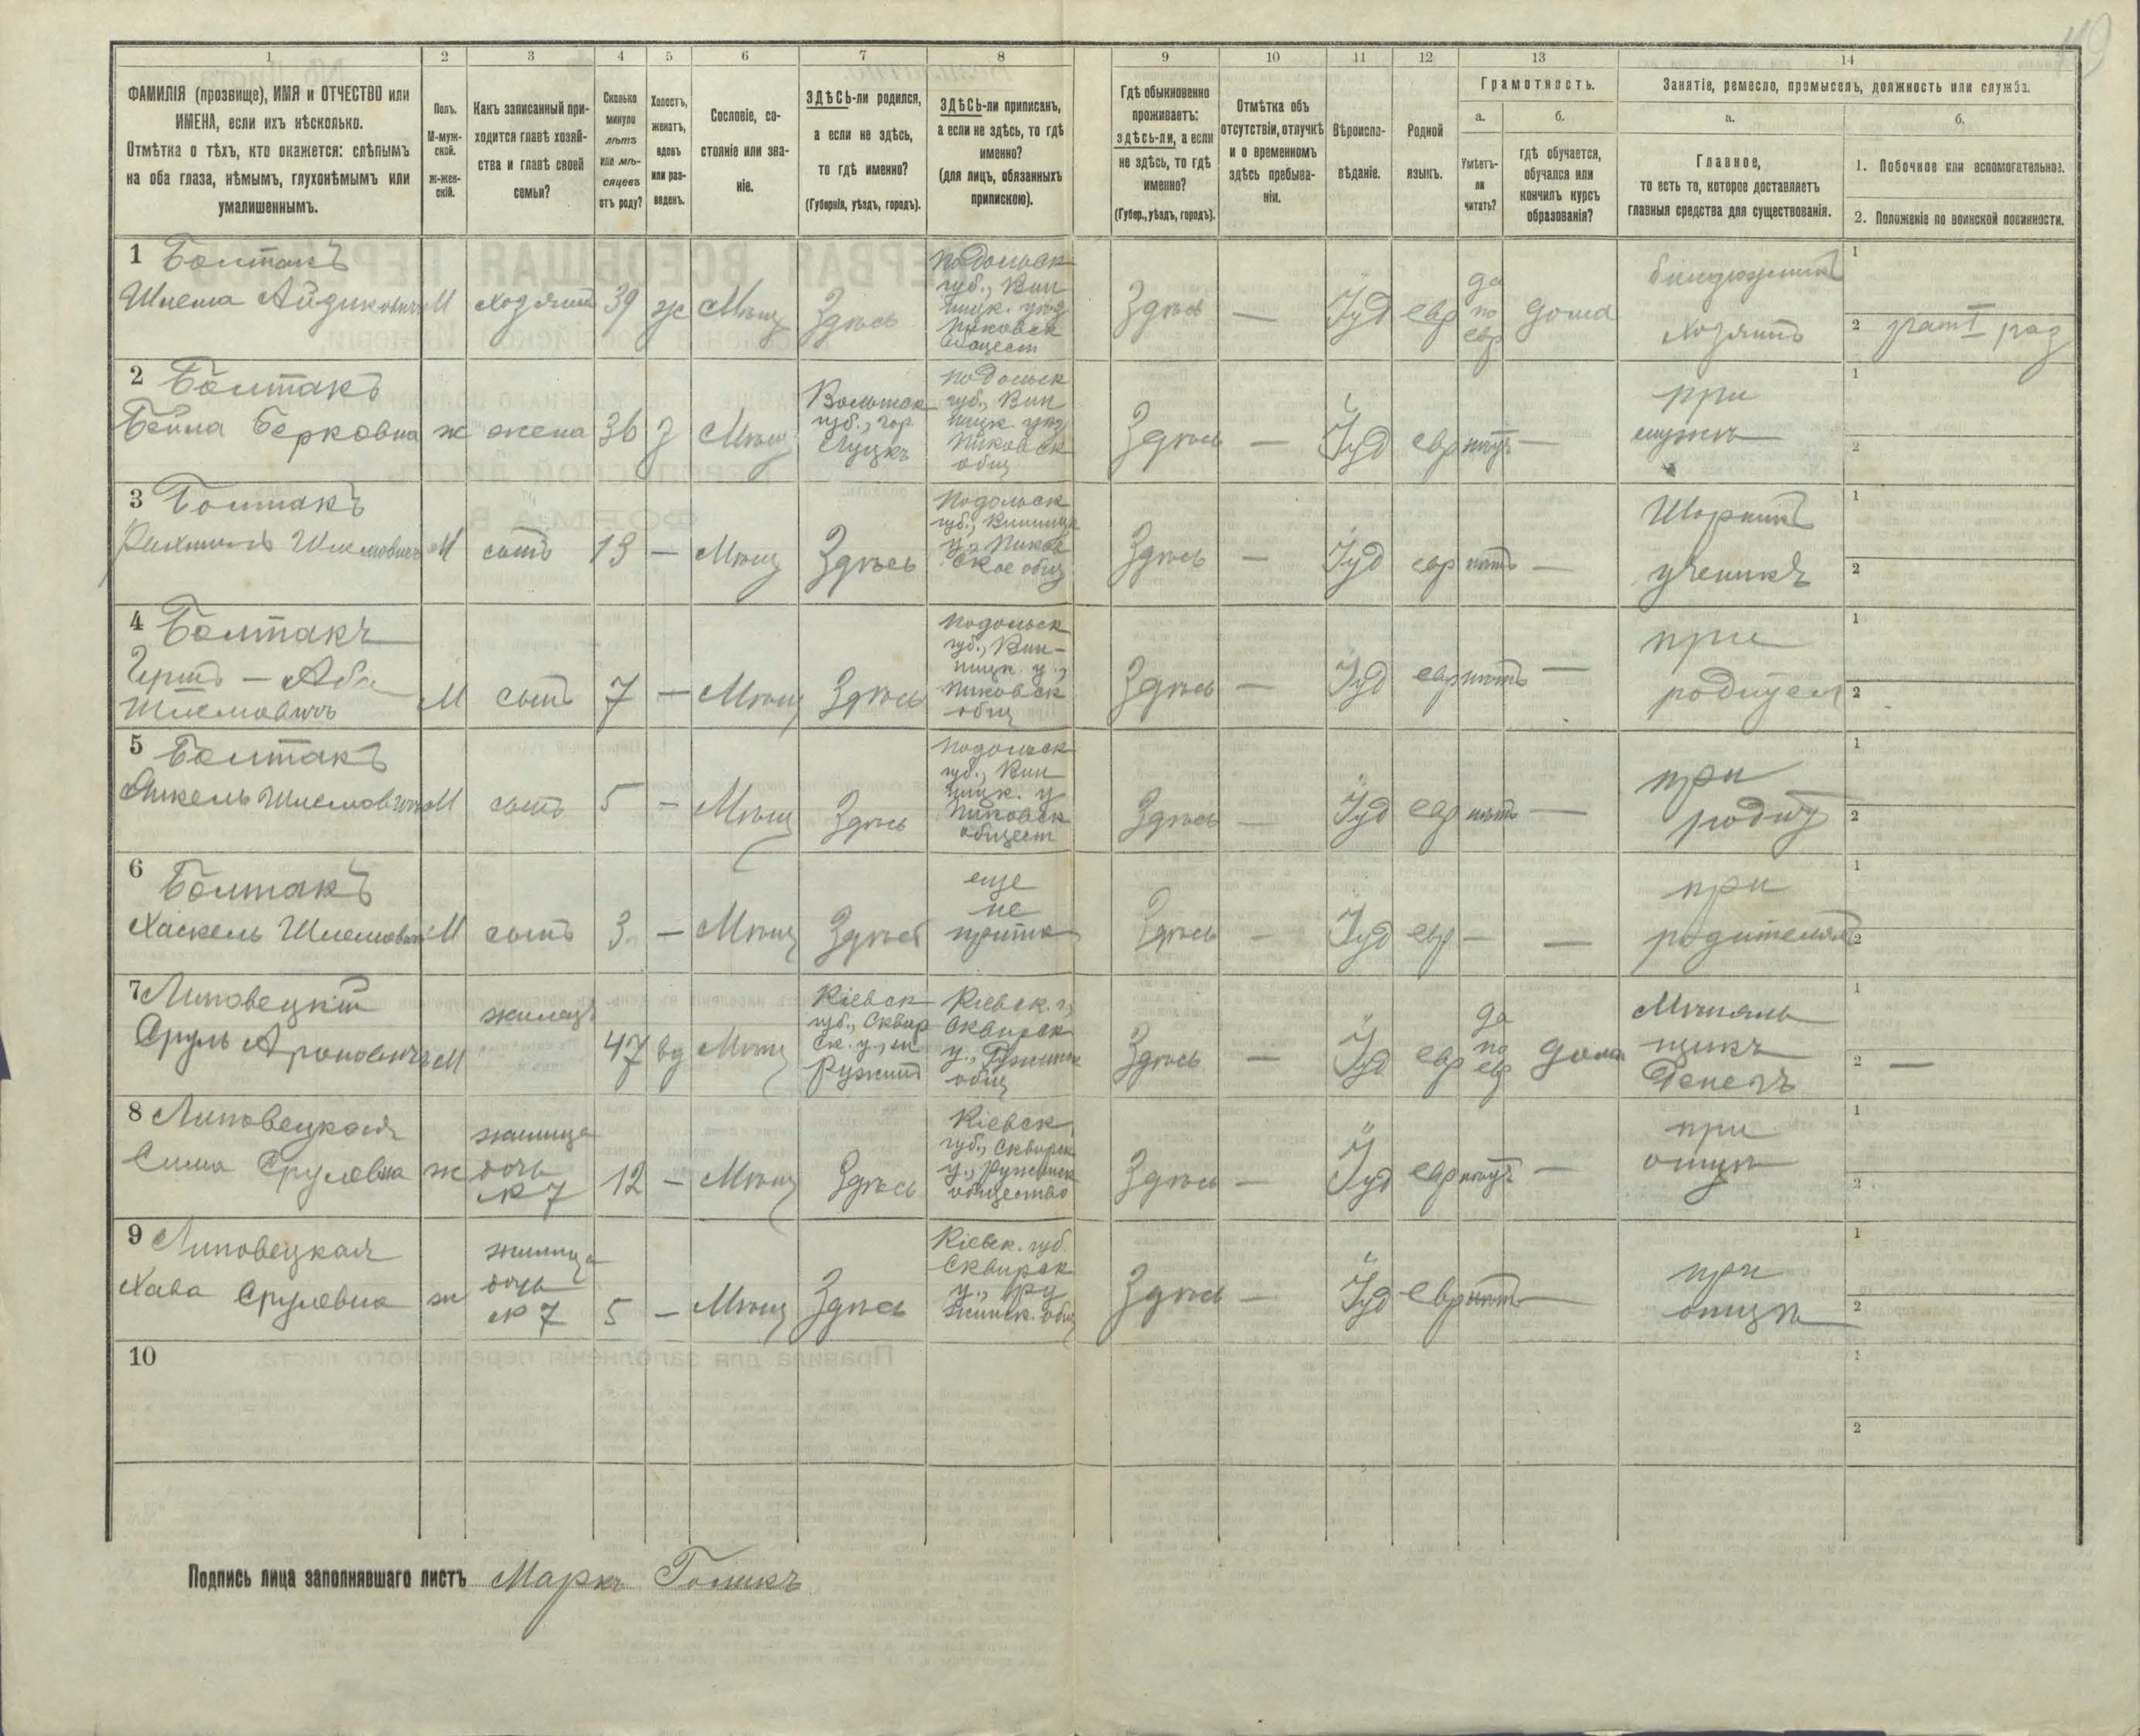 119
1
2
3
4
5
6
7
8
9
10
11
12
13
14
ФАМИЛІЯ (прозвище), ИМЯ и ОТЧЕСТВО или
ИМЕНА, если ихъ нѣсколько.
Отмѣтка о тѣхъ, кто окажется: слѣпымъ
на оба глаза, нѣмымъ, глухонѣмымъ или
умалишеннымъ.
Полъ.
М-муж-
ской.
ж-жен-
скій.
Какъ записанный при-
ходится главѣ хозяй-
ства и главѣ своей
семьи?
Сколько
минуло
лѣтъ
или мѣ-
сяцевъ
отъ роду?
Холостъ,
женатъ,
вдовъ
или раз-
веденъ.
Сословіе, со-
стояніе или зва-
ніе.
ЗДѢСЬ-ли родился,
а если не здѣсь,
то гдѣ именно?
(Губернія, уѣздъ, городъ).
ЗДѢСЬ-ли приписанъ,
а если не здѣсь, то гдѣ
именно?
(для лицъ, обязанныхъ
припискою).
Гдѣ обыкновенно
проживаетъ:
здѣсь-ли, а если
не здѣсь, то гдѣ
именно?
(Губер., уѣздъ, городъ).
Отмѣтка объ
отсутствіи, отлучкѣ
и о временномъ
здѣсь пребыва-
ніи.
Вѣроиспо-
вѣданіе.
Родной
языкъ.
Грамотность.
а.
Умѣетъ-
ли
читать?
б.
гдѣ обучается,
обучался или
кончилъ курсъ
образованія?
Занятіе, ремесло, промыселъ, должность или служба.
а.
Главное,
то есть то, которое доставляетъ
главныя средства для существованія.
б.
1. Побочное или вспомогательное.
2. Положеніе по воинской повинности.
1 Болтакъ
Шлема Айзиковичъ М хозяинъ 39 ж Мѣщ Здѣсь
Подольск
губ., Вин
ницк. уѣз
Пиковск
общест
Здѣсь — Іуд евр
да
по
евр
дома
хозяинъ
1
2 грат I раз
2 Болтакъ
Бейла Берковна ж жена 36 з Мѣщ
Волынск
губ., гор.
Луцкъ
Подольск
губ., Вин
ницк. уѣз
Пиковск
общ
Здѣсь — Іуд евр нѣтъ —
при
мужѣ
1
2
3 Болтакъ
Рахмиль Шлемовичъ М сынъ 13 — Мѣщ Здѣсь
Подольск
губ., Винницк
у., Пиков
ское общ
Здѣсь — Іуд евр нѣтъ —
Шорникъ
ученикъ
1
2
4 Болтакъ
Герш — Аба
Шлемовичъ
М сынъ 7 — Мѣщ Здѣсь
Подольск
губ., Вин-
ницк у.,
Пиковск
общ
Здѣсь — Іуд евр нѣтъ —
при
родител
1
2
5 Болтакъ
Янкель Шлемовичъ М сынъ 5 — Мѣщ Здѣсь
Подольск
губ., Вин
ницк. у
Пиковск
общест
Здѣсь — Іуд евр нѣтъ —
при
родит
1
2
6 Болтакъ
Хаскель Шлемович М сынъ 3 — Мѣщ Здѣсь
еще
не
припис
Здѣсь — Іуд евр — —
при
родителях
1
2
7 Липовецкій
Сруль Ароновичъ М
жилецъ
47 вд Мѣщ
Кіевск
губ., Сквир
ск. у., м
Ружинъ
Кіевск. г.,
Сквирск
у., Ружинск
общ
Здѣсь — Іуд евр
да
по
евр
дома
1
2 —
8 Липовецкая
Сима Срулевна ж
жилица
дочь
№ 7
12 — Мѣщ Здѣсь
Кіевск
губ., Сквирск
у., Ружинск
общество
Здѣсь — Іуд евр нѣтъ —
при
отцѣ
1
2
9 Липовецкая
Хава Срулевна ж
жилица
дочь
№ 7
5 — Мѣщ Здѣсь
Кіевск. губ.
Сквирск
у., Ру
жинск. общ
Здѣсь — Іуд евр нѣтъ —
при
отцѣ
1
2
10
1
2
Подпись лица заполнявшаго листъ Маркъ Голикъ